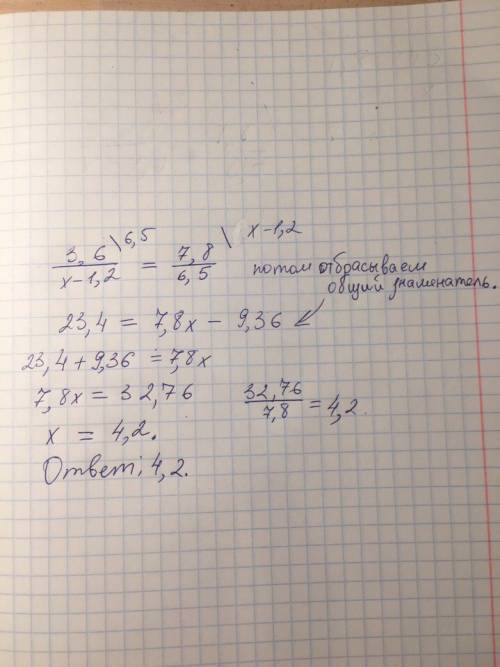 3,6 \6,5 / x-1,2 = 7,8 \x-1,2 / 6,5 потом отбрасываем
общий знаменатель.
23,4 = 7,8x - 9,36
23,4 + 9,36 = 7,8x
7,8x = 32,76 32,76 / 7,8 = 4,2.
x = 4,2.
Ответ: 4,2.